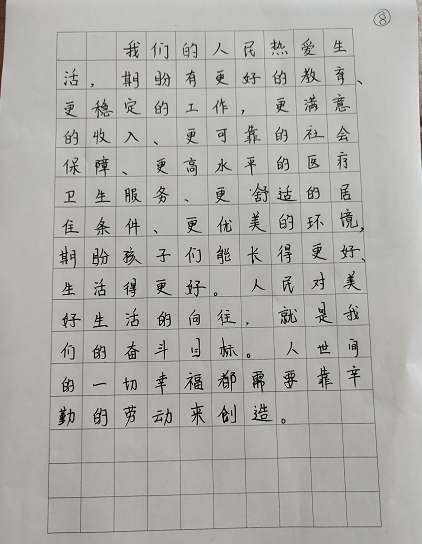 ⑧
我们的人民热爱生
活，期盼有更好的教育、
更稳定的工作，更满意
的收入、更可靠的社会
保障、更高水平的医疗
卫生服务、更舒适的居
住条件、更优美的环境，
期盼孩子们能长得更好、
生活得更好。人民对美
好生活的向往，就是我
们的奋斗目标。人世间
的一切幸福都需要靠辛
勤的劳动来创造。